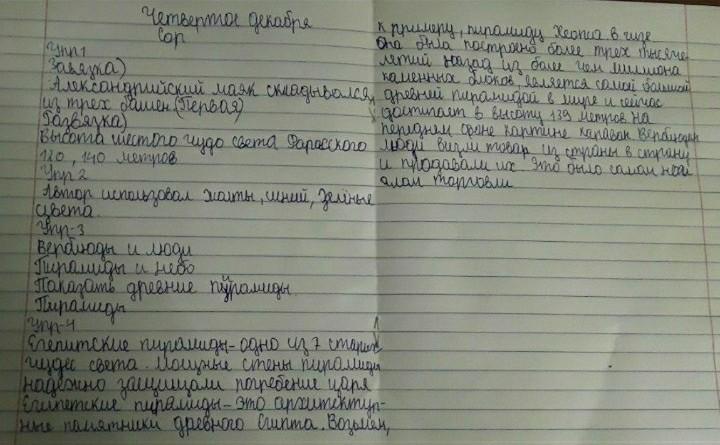 Четвертое декабря
Сор
Упр1
Завязка)
Александрийский маяк складывался
из трех башен (Первая)
Развязка)
Высота шестого чудо света Фаросского
120, 140 метров
Упр 2
Автор использовал желты, синий, зелёные
цвета.
Упр-3
Верблюды и люди
Пирамиды и небо
Показать древние пирамиды.
Пирамиды
Упр-4
Египитские пирамиды - одно из 7 старых
чудес света. Мощные стены пирамиды
надежно защищали погребение царя
Египетские пирамиды - это архитектур-
ные памятники древного Египта. Возьмем,
к примеру, пирамиду Хеопса в гизе
она была построена более трех тысяче
летий назад из более чем милиона
каменных блоков, является самой большой
древней пирамидой в мире и сейчас
достигает в высоту 139 метров на
переднем фоне картине караван Верблюдов
люди визли товар из страны в страну
и продавали их. Это было самом
торговли